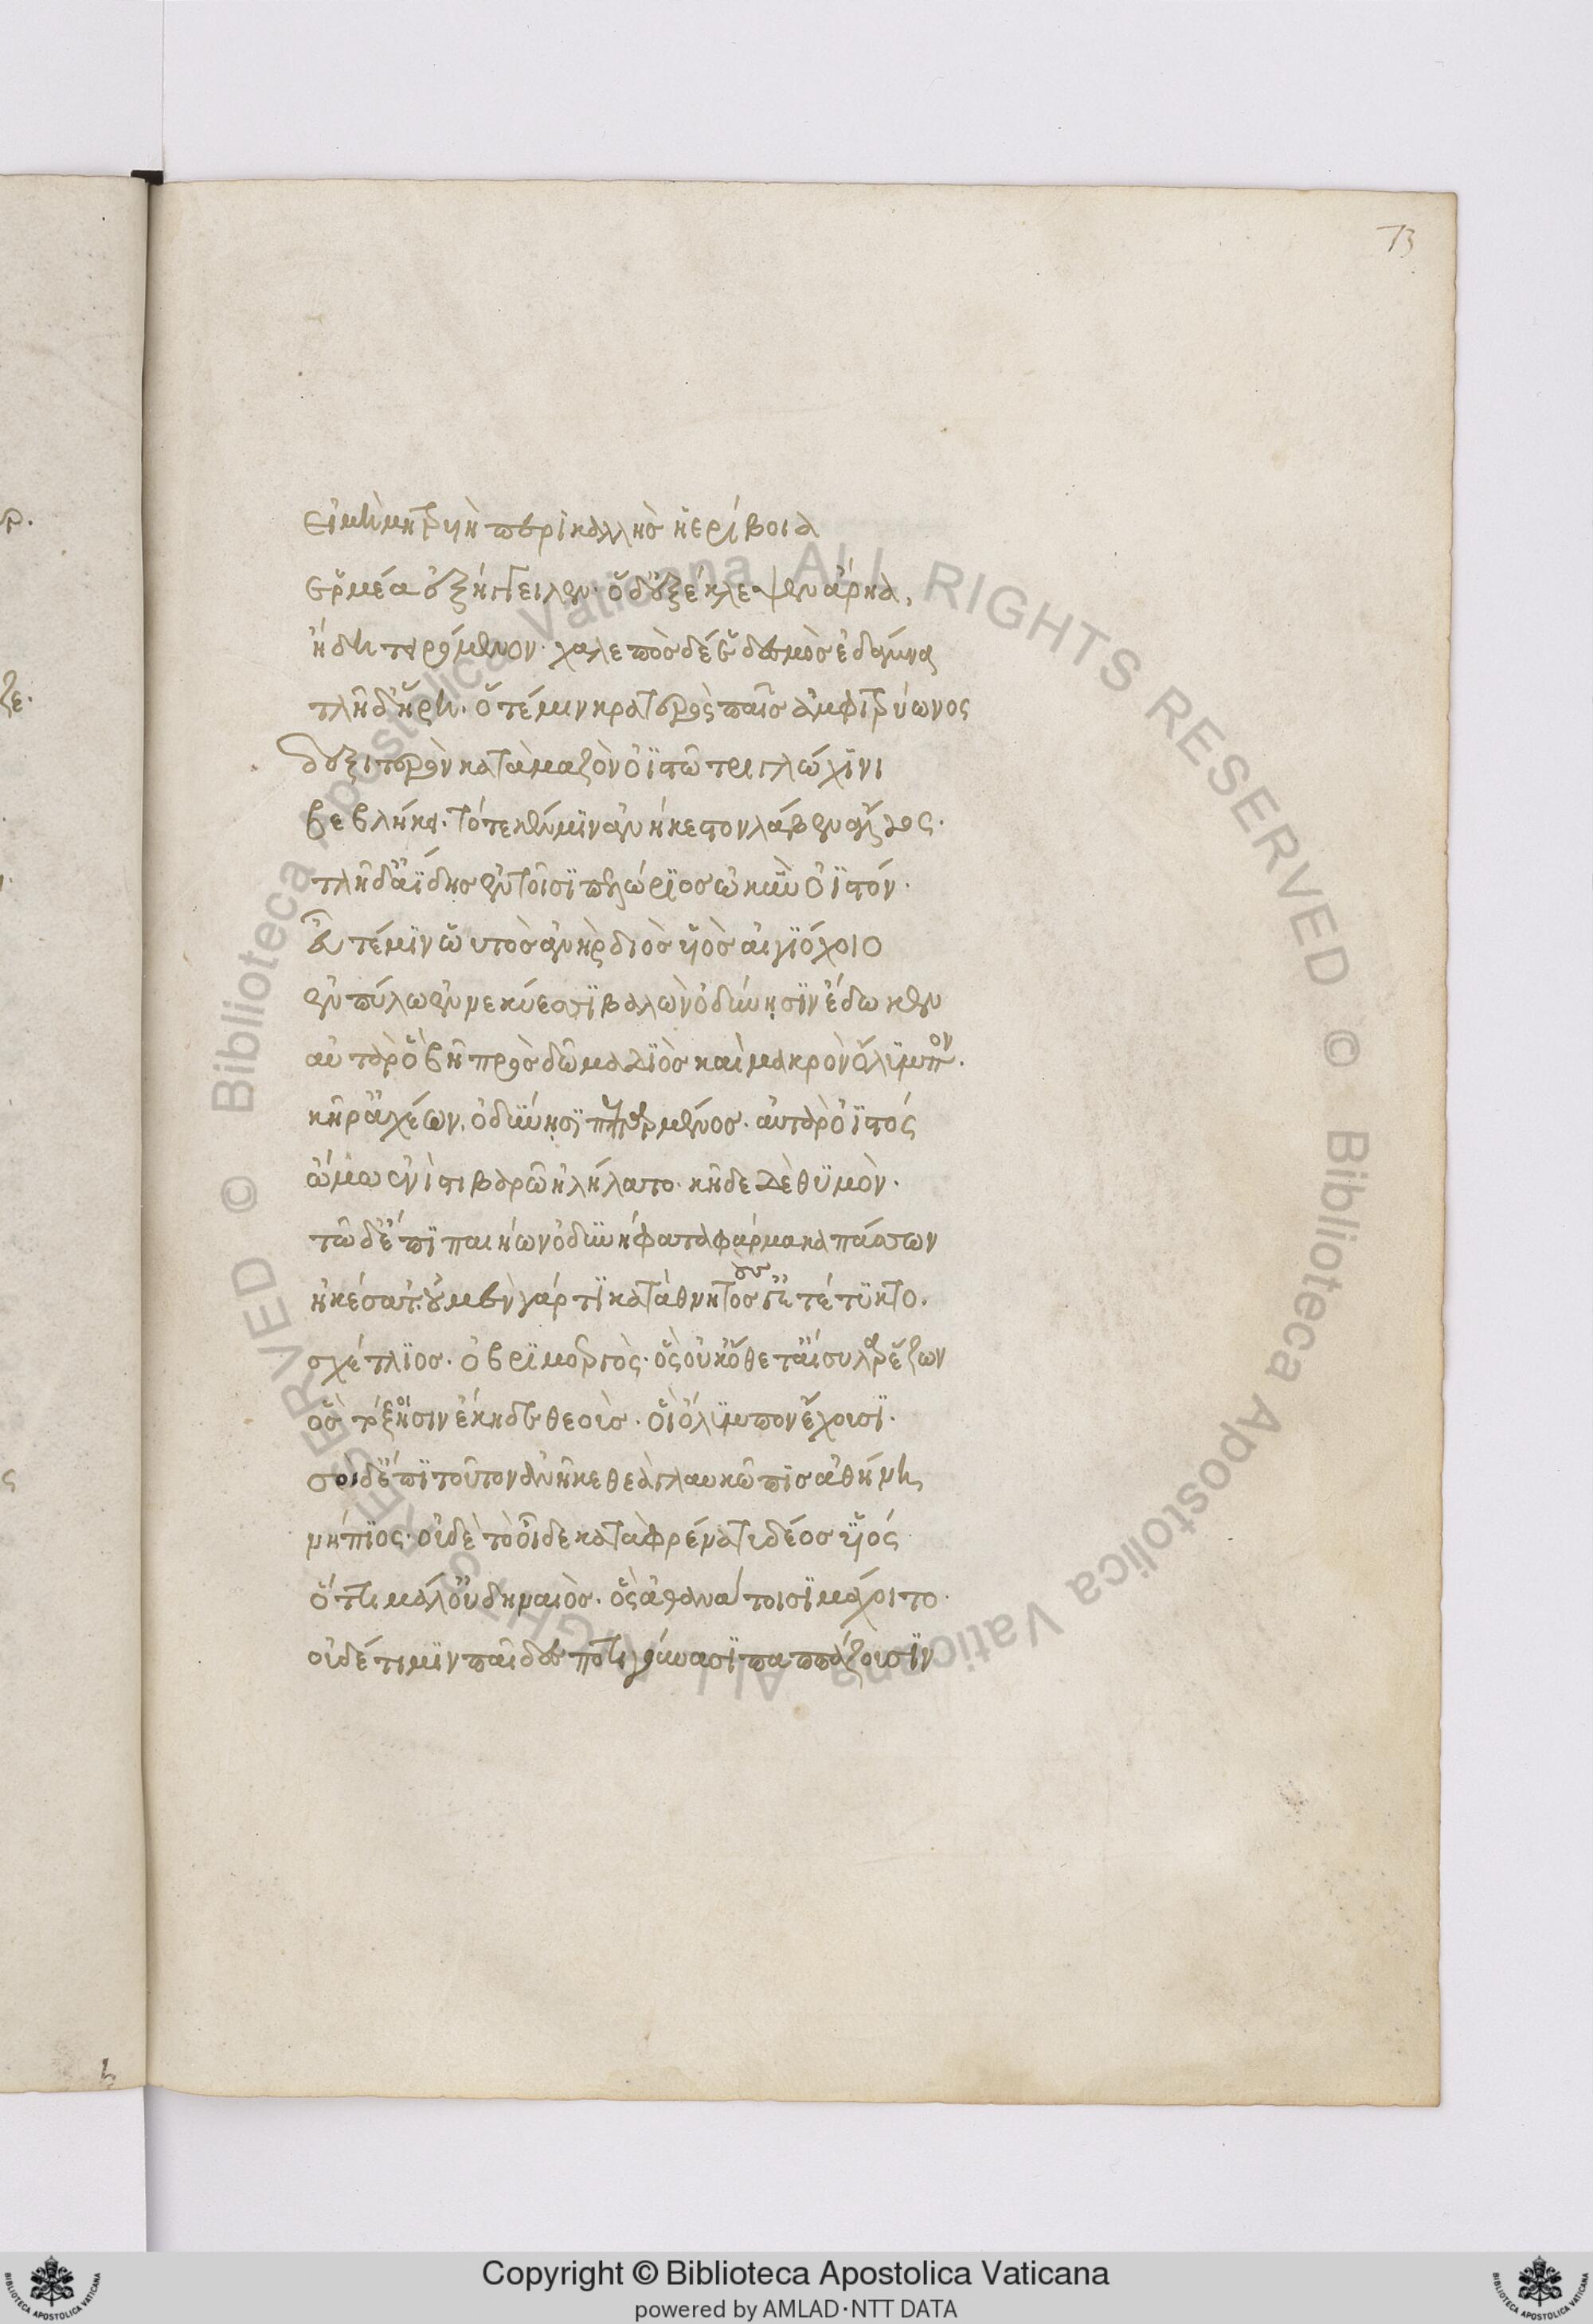 73
Εἰ μὴ μητρυιὴ περικαλλὴς ἠερίβοια
ἑρμέα ἐξήγγειλεν· ὁ δ' ἐξέκλεψεν ἄρηα,
ἤδη τειρόμενον· χαλεπὸς δέ ἑ δεσμὸς ἐδάμνα
τλῆ δ' ἥρη· ὅτέ μιν κρατερὸς παῖς ἀμφιτρύωνος
δεξιτερὸν κατὰ μαζὸν ὀϊστῶ τριγλώχινι
βεβλήκει· τότε κέν μιν ἀνήκεστον λάβεν ἄλγος.
τλῆ δ' ἀΐδης ἐν τοῖσι πελώριος ὠκὺν ὀϊστόν·
εὖτέ μιν ωὑτὸς ἀνὴρ διὸς υἱὸς αἰγιόχοιο
ἐν πύλω ἐν νεκύεσσι βαλὼν ὀδύνησιν ἔδωκεν
αὐτὰρ ὁ βῆ πρὸς δῶμα διὸς καὶ μακρὸν ὄλυμπον.
κῆρ ἀχέων, ὀδύνησι πεπαρμένος. αὐτὰρ ὀϊστός
ὤμω ἐνὶ στιβαρῶ ἠλήλατο· κῆδε δὲ θυμὸν.
τῶ δ' ἔπι παιήων ὀδυνήφατα φάρμακα πάσσων
ἠκέσατ'· οὐ μὲν γάρ τι καταθνητός γε τέτυκτο.
σχέτλιος· ὀβριμοεργὸς· ὃς οὐκ ὄθετ' αἴσυλα ῥέζων
ὃς τόξοισιν ἔκηδε θεοὺς· οἳ ὄλυμπον ἔχουσι.
σοὶ δ' ἔπι τοῦτον ἀνῆκε θεὰ γλαυκῶπις ἀθήνη
νήπιος· οὐδὲ τὸ οἶδε κατὰ φρένα τυδέος υἱός
ὅττι μάλ' οὐ δηναιὸς· ὃς ἀθανάτοισι μάχοιτο·
οὐδέ τι μιν παῖδες ποτὶ γούνασι παππάζουσιν
Copyright © Biblioteca Apostolica Vaticana
powered by AMLAD·NTT DATA